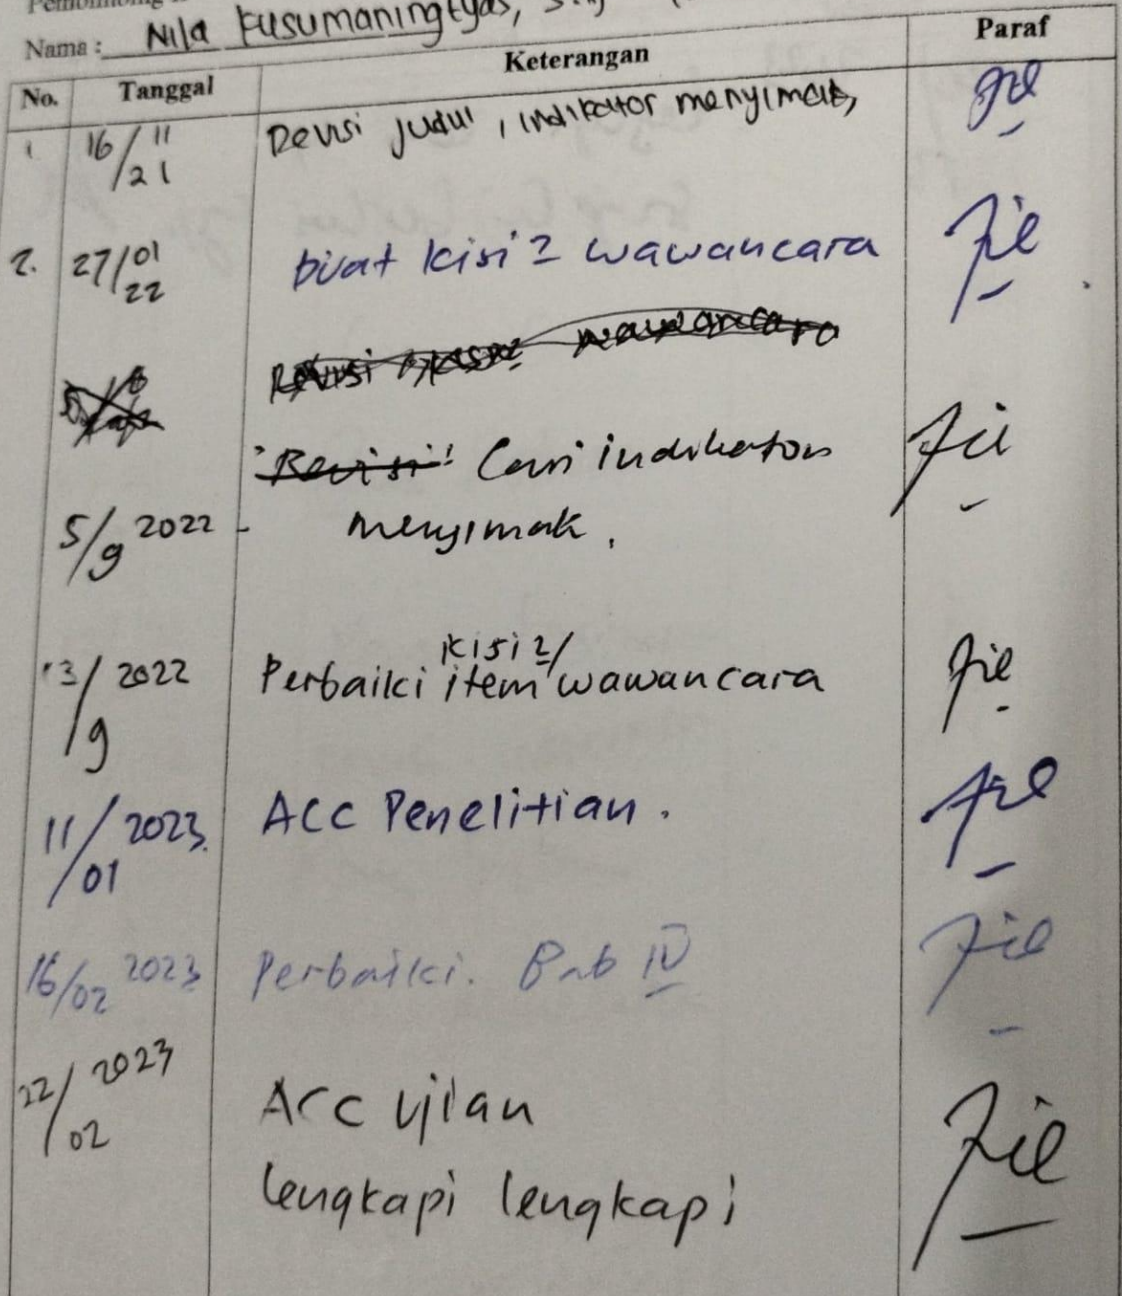 Nama : Nila Kusumaningtyas,
No. Tanggal Keterangan Paraf
1. 16/11/21 Revisi judul, indikator menyimak,
2. 27/01/22 buat kisi2 wawancara
Revisi wawancara
Revisi Cari indikator
5/9 2022 - menyimak.
kisi2/
13/9 2022 Perbaiki item wawancara
11/01 2023. ACC Penelitian.
16/02 2023 Perbaiki. Bab IV
22/02 2023 Acc ujian
lengkapi lengkapi